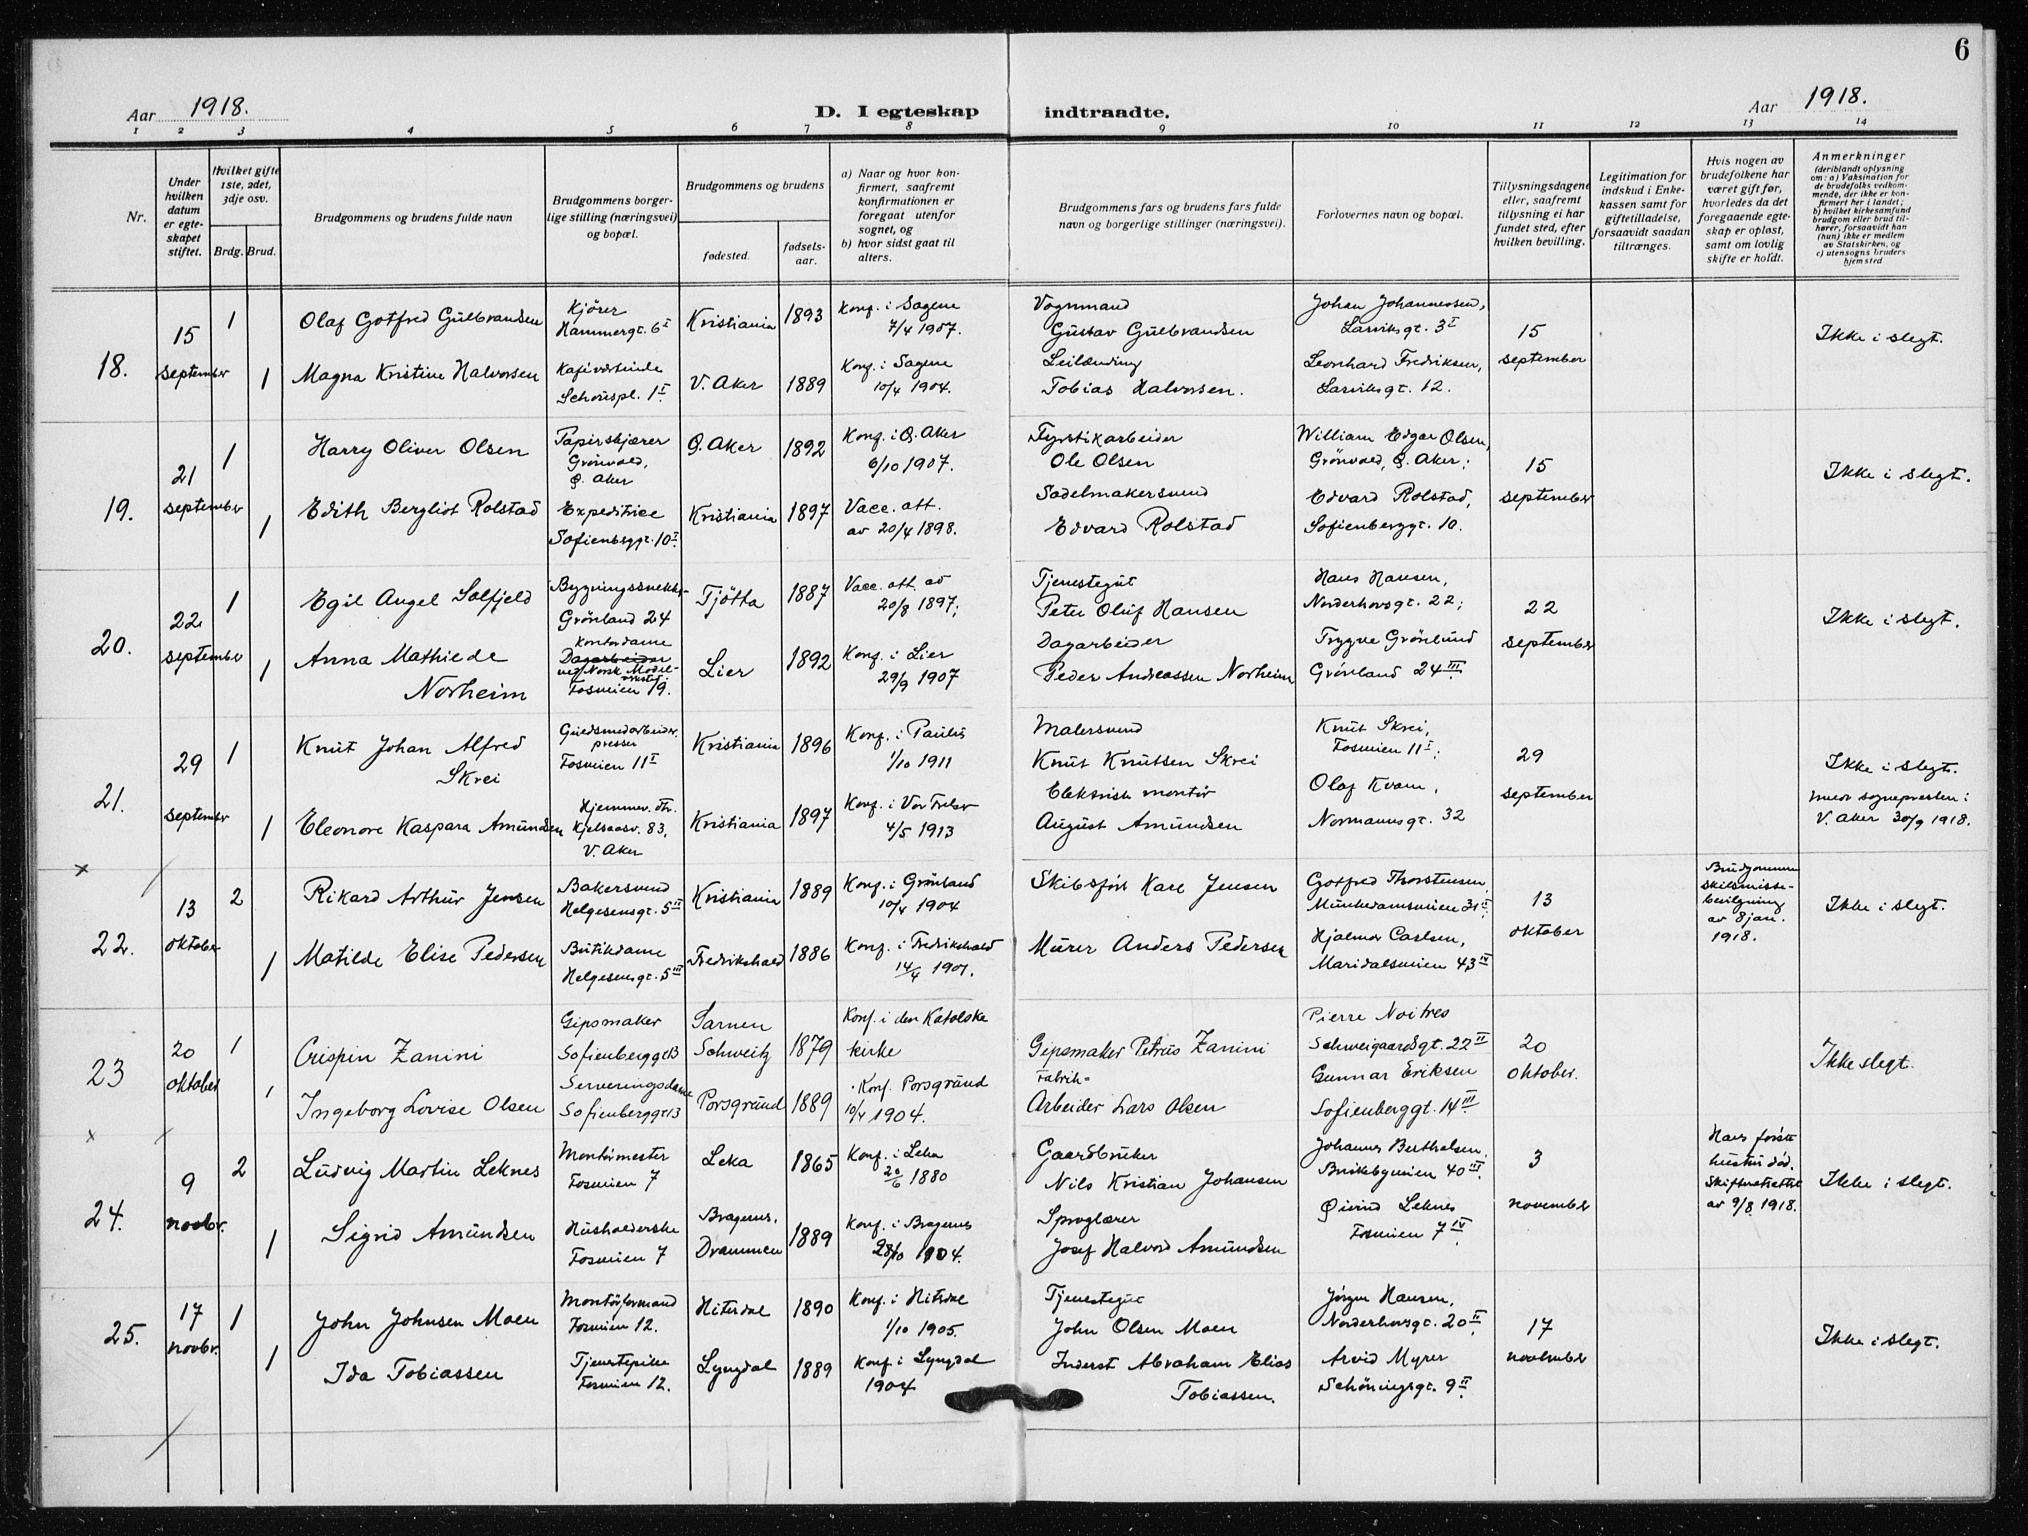 6
Aar 1918.
D. I egteskap indtraadte.
Aar 1918.
1 2 3 4 5 6 7 8 9 10 11 12 13 14
Nr.
Under hvilken datum er egteskapet stiftet.
Hvilket gifte 1ste, 2det, 3dje osv.
Brdg. Brud.
Brudgommens og brudens fulde navn
Brudgommens borgerlige stilling (næringsvei) og bopæl.
Brudgommens og brudens
fødested.
fødselsaar.
a) Naar og hvor konfirmert, saafremt konfirmationen er foregaat utenfor sognet, og
b) hvor sidst gaat til alters.
Brudgommens fars og brudens fars fulde navn og borgerlige stillinger (næringsvei).
Forlovernes navn og bopæl.
Tillysningsdagene eller, saafremt tillysning ei har fundet sted, efter hvilken bevilling.
Legitimation for indskud i Enkekassen samt for giftetilladelse, forsaavidt saadan tiltrænges.
Hvis nogen av brudefolkene har været gift før, hvorledes da det foregaaende egteskap er opløst, samt om lovlig skifte er holdt.
Anmerkninger (deriblandt oplysning om: a) Vaksination for de brudefolks vedkommende, der ikke er konfirmert her i landet; b) hvilket kirkesamfund brudgom eller brud tilhører, forsaavidt han (hun) ikke er medlem av Statskirken, og c) utensogns bruders hjemsted
18.
15 september
1
Olaf Gotfred Gulbrandsen
Kjörer
Hammergt. 6 I
Kristiania
1893
Konf. i Sagene
7/4 1907.
Vognmand
Gustav Gulbrandsen
Johan Johannessen,
Larviksgt. 3 I
15 september
Ikke i slegt.
1
Magna Kristine Halvorsen
Kafévertinde
Schouspl. 1 I.
V. Aker
1889
Konf. i Sagene
10/4 1904.
Leilænding
Tobias Halvorsen.
Leonhard Fredriksen,
Larviksgt. 12.
19.
21 september
1
Harry Oliver Olsen
Papirskjærer
Grönvold,
Ö. Aker
Ö. Aker
1892
Konf. i Ö. Aker
6/10 1907.
Fyrstikarbeider
Ole Olsen
William Edgar Olsen,
Grönvold, Ö. Aker;
15 september
Ikke i slegt.
1
Edith Bergliot Rolstad
Expeditrice
Sofienbggt. 10 I.
Kristiania
1897
Vacc. att.
av 20/4 1898.
Sadelmakersvend
Edvard Rolstad
Edvard Rolstad,
Sofienberggt. 10.
20.
22 september
1
Egil Angel Solfjeld
Bygningssnekker
Grönland 24
Tjötta
1887
Vacc. att. av
20/8 1897;
Tjenestegut
Peter Oluf Hansen
Hans Hansen,
Norderhovsgt. 22;
22 september
Ikke i slegt.
1
Anna Mathilde
Norheim
Kontordame
Dagarbeider
ved Norsk Model-
Fosveien 19.
Lier
1892
Konf. i Lier
29/9 1907
Dagarbeider
Peder Andreassen Norheim
Trygve Grönlund
Grönland 24 III.
21.
29 september
1
Knut Johan Alfred
Skrei
Guldsmedarbeider,
presser
Fosveien 11 I
Kristiania
1896
Konf. i Paulus
1/10 1911
Malersvend
Knut Knutsen Skrei
Knut Skrei,
Fosveien 11 I;
29 september
Ikke i slegt.
sognepresten i
V. Aker 30/9 1918.
1
Eleonore Kaspara Amundsen
Hjemmev. dtr.
Kjelsaasv. 83,
V. Aker
Kristiania
1897
Konf. i Vor Frelser
4/5 1913
Elektrisk montör
August Amundsen
Olaf Kvam,
Normannsgt. 32
x
22.
13 oktober
2
Rikard Arthur Jensen
Bakersvend
Helgesensgt. 5 II
Kristiania
1889
Konf. i Grönland
10/4 1904
Skibsför. Karl Jensen
Gotfred Thorstensen,
Munkedamsveien 31 II;
13 oktober
Brudgommen
skilsmisse-
bevilgning
av 8 jan.
1918.
Ikke i slegt.
1
Matilde Elise Pedersen
Butikdame
Helgesensgt. 5 III
Fredrikshald
1886
Konf. i Fredrikshald
14/4 1901.
Murer Anders Pedersen
Hjalmar Carlsen,
Maridalsveien 43 IV
23
20 oktober
1
Crispin Zanini
Gipsmaker
Sofienberggt 13
Sarnen
Schweitz
1879
Konf. i den Katolske
kirke
Gipsmaker Petrus Zanini
Pierre Noitres
Schweigaardsgt. 22 II
20 oktober.
Ikke slegt.
1
Ingeborg Lovise Olsen
Serveringsdame
Sofienberggt 13
Porsgrund
1889
Konf. Porsgrund
10/4 1904.
Fabrik=
Arbeider Lars Olsen
Gunnar Eriksen
Sofienberggt. 14 III
x
24.
9 novbr.
2
Ludvig Martin Leknes
Montörmester
Fosveien 7
Leka
1865
Konf. i Leka
20/6 1880
Gaardbruker
Nils Kristian Johansen
Johannes Berthelsen,
40 III.
3 november
Hans förste
hustru död.
Skifteattest
av 9/8 1918.
Ikke i slegt.
1
Sigrid Amundsen
Husholderske
Fosveien 7
Bragernes,
Drammen
1889
Konf. i Bragernes
28/10 1904.
Sproglærer
Josef Halvord Amundsen
Öivind Leknes
Fosveien 7 IV.
25.
17 novbr.
1
John Johnsen Moen
Montörformand
Fosveien 12.
Hiterdal
1890
Konf. i Hiterdal
1/10 1905.
Tjenestegut
John Olsen Moen
Jörgen Hansen,
Norderhovsgt. 20 II.
17 november
Ikke i slegt.
1
Ida Tobiassen
Tjenestepike
Fosveien 12.
Lyngdal
1889
Konf. i Lyngdal
1904
Inderst Abraham Elias
Tobiassen.
Arvid Myrer
Schöningsgt. 9 II.